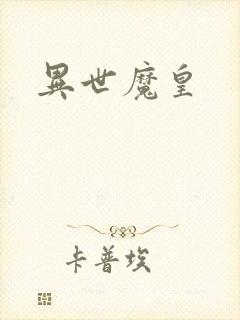 異世魔皇
卡普埃